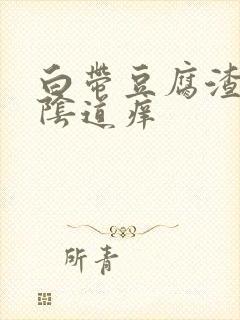 白带豆腐渣
陰道痒
所青